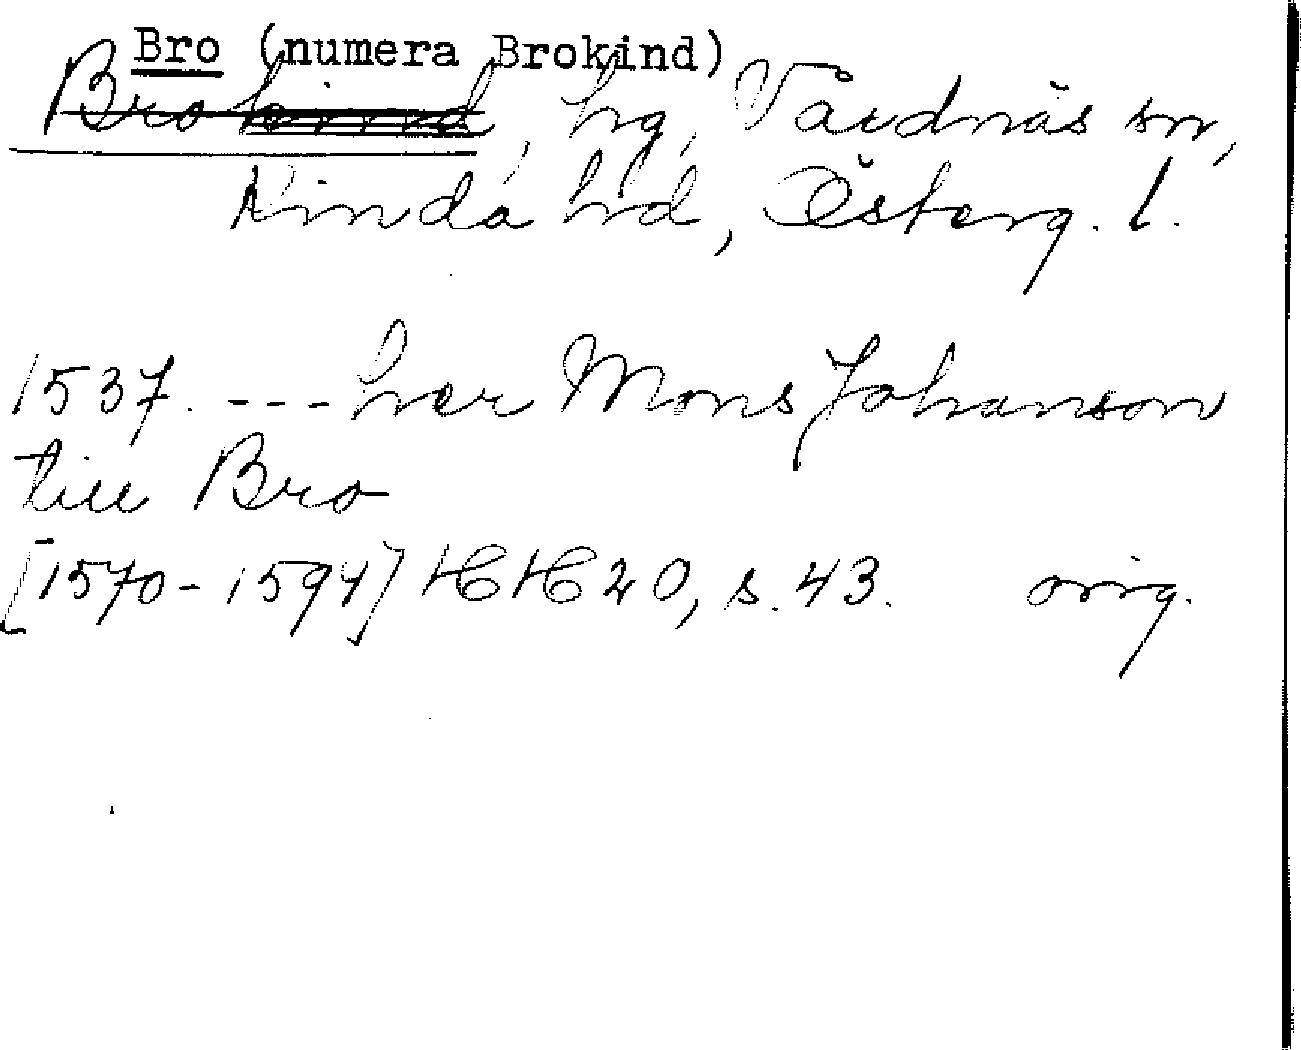 Bro (numera Brokind)
Brokind, hg, Vårdnäs sn,
Kinda hd, Österg. l.
1537. --- her Mons Johanson
till Bro
[1570-1594] HH 20, s. 43. orig.